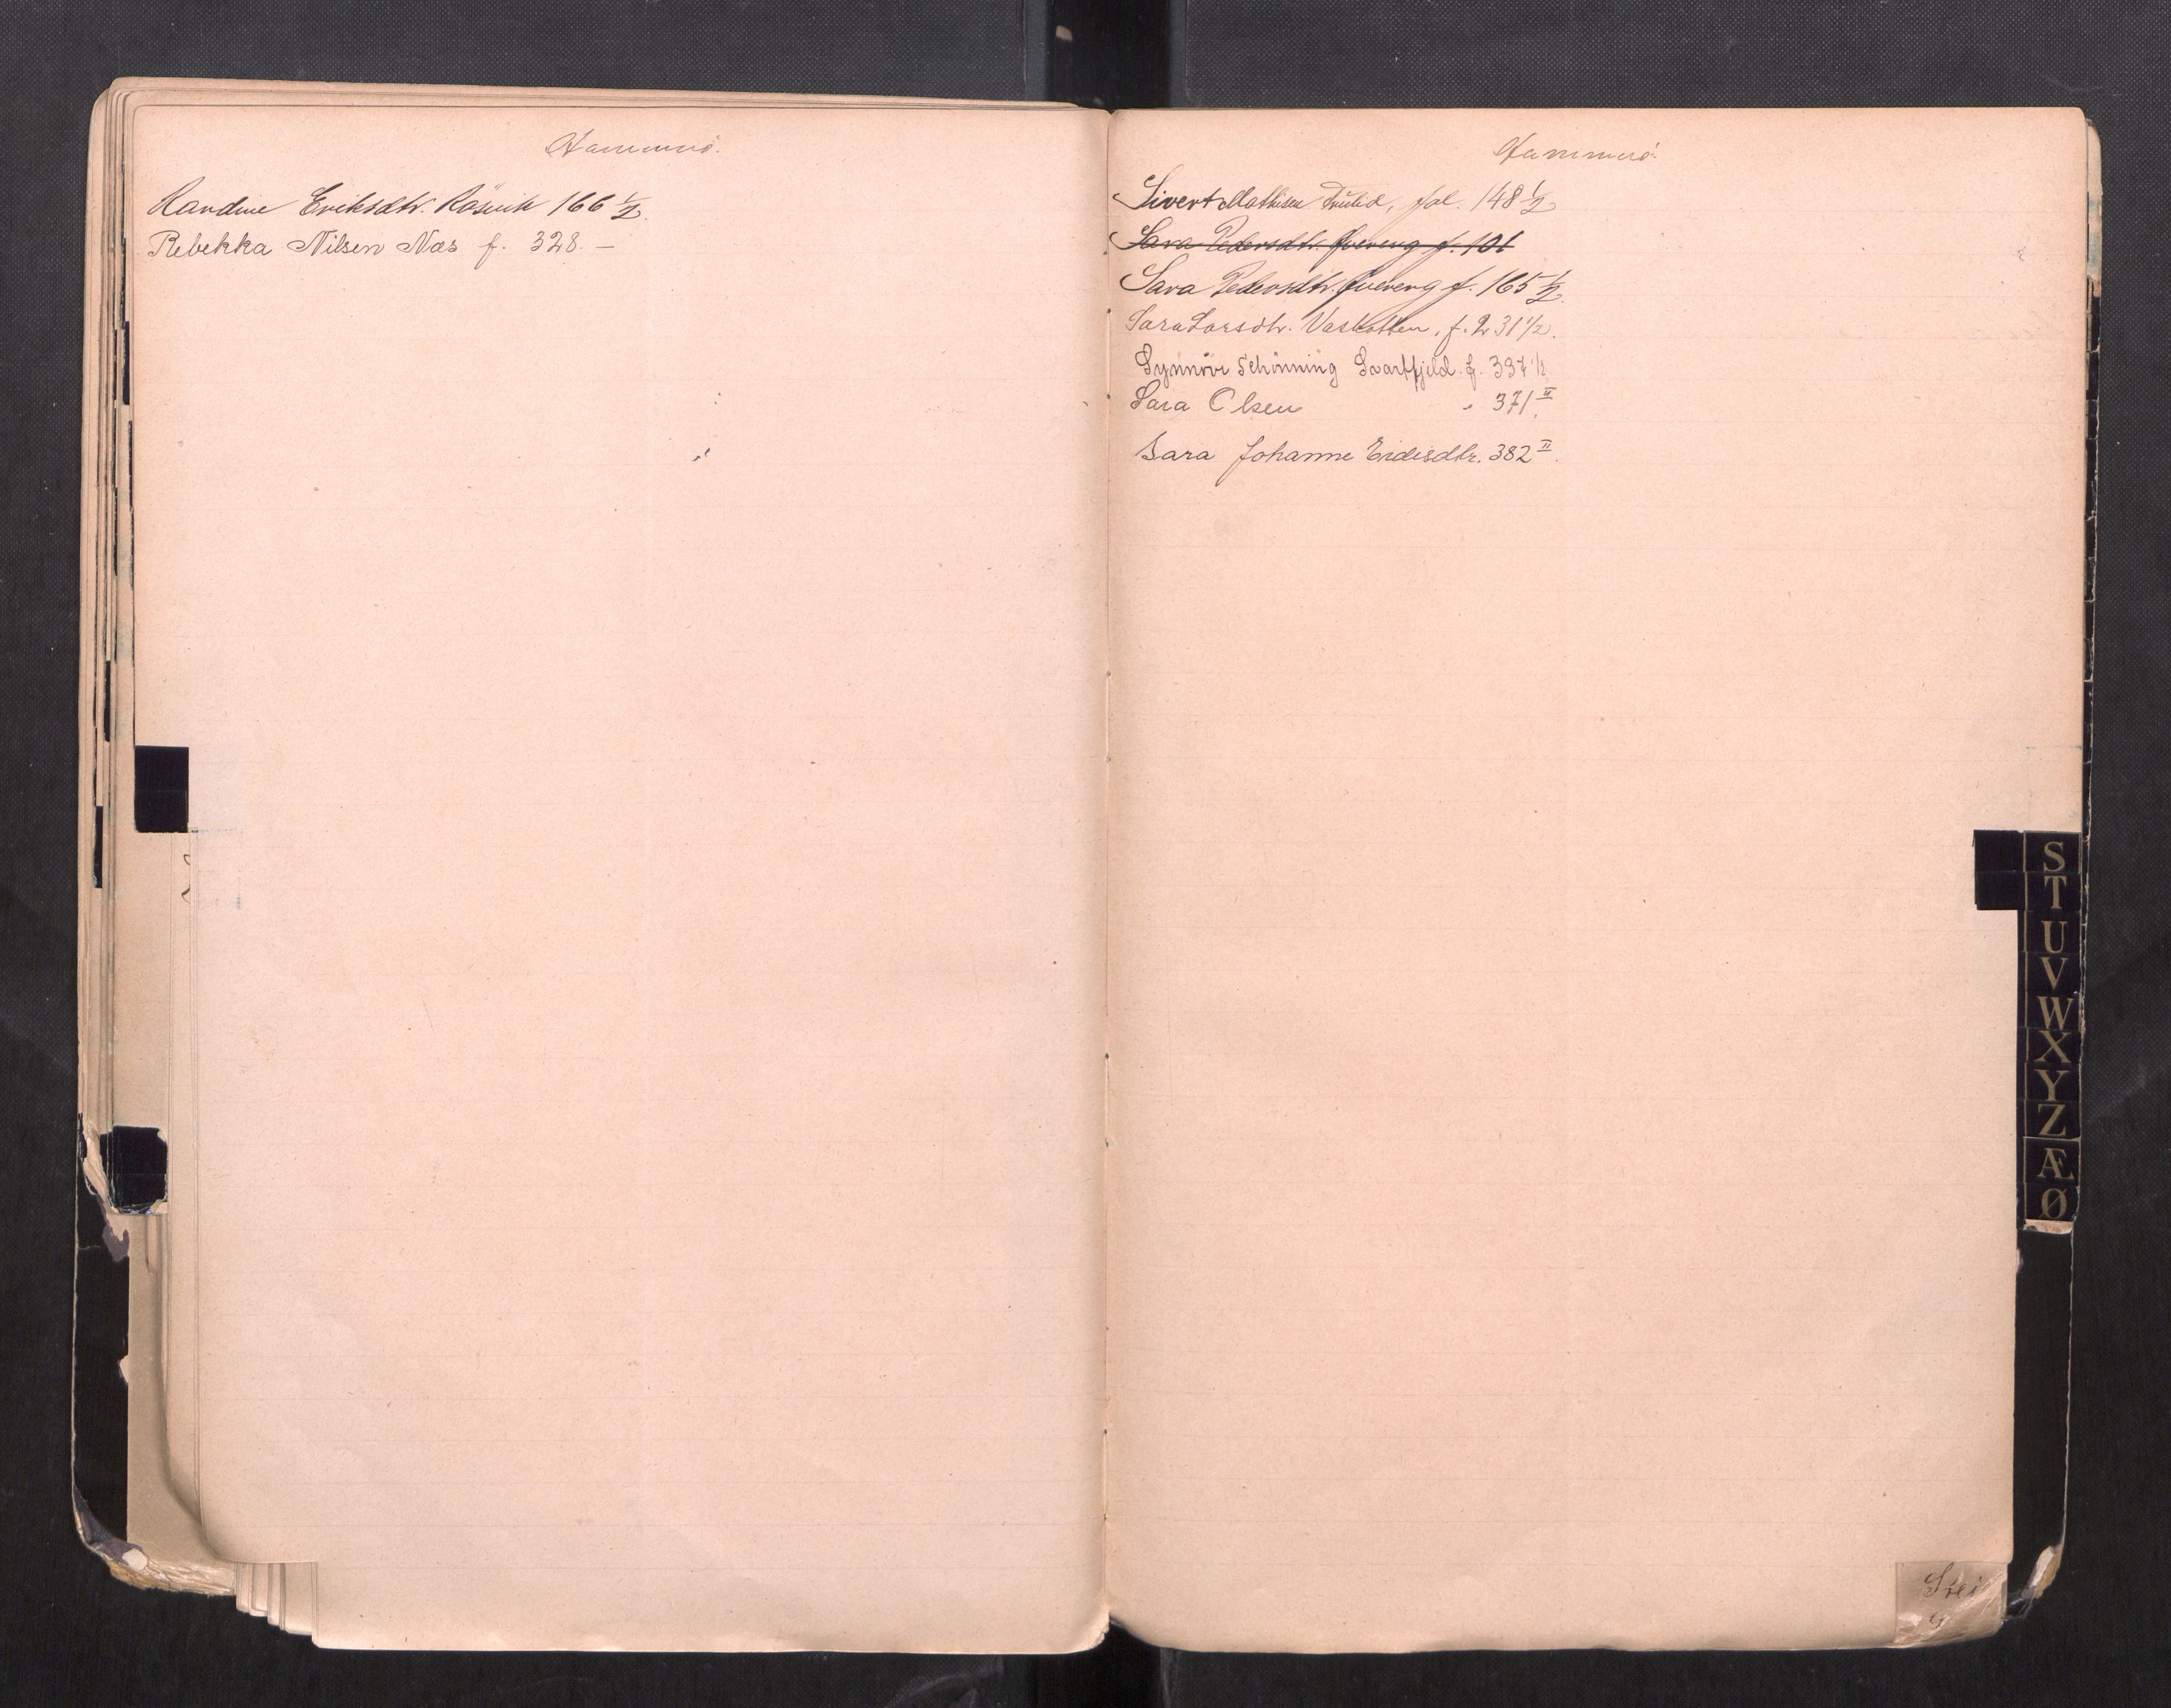 Hammerö.
Randine Eriksdtr. Rösvik 166 1/2.
Rebekka Nilsen Næs f. 328. —
Hammerö.
Sivert Mathisen fol. 148 1/2
Sara Pedersdtr. f. 101
Sara Pedersdtr. f. 165 1/2.
Sara Larsdtr. f. 231 1/2.
Synnöve Schönning Svartfjeld. f. 337 1/2
Sara Olsen " 371 II
Sara Johanne Endresdtr. 382 II.
S
T
U
V
W
X
Y
Z
Æ
Ø